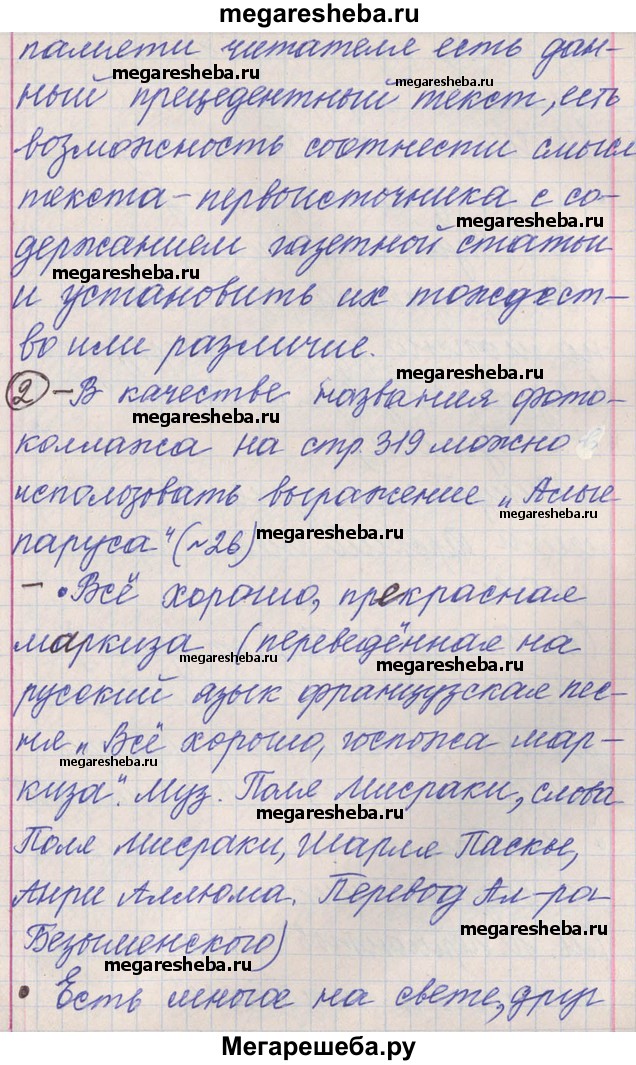 megaresheba.ru
памяти читателе есть дан-
megaresheba.ru megaresheba.ru
ный прецедентный текст, есть
возможность соотнести смысл
megaresheba.ru
текста-первоисточника с со-
megaresheba.ru
держанием газетной статьи
megaresheba.ru
и установить их тождест-
во или различие.
megaresheba.ru
2 - В качестве названия фото-
megaresheba.ru
коллажа на стр. 319 можно
использовать выражение „Алые
megaresheba.ru
паруса“ (~26)
megaresheba.ru
- • Всё хорошо, прекрасная
маркиза (переведённая на
megaresheba.ru megaresheba.ru
русский язык французская пес-
ня „Всё хорошо, госпожа мар-
megaresheba.ru
киза“. Муз. Поля Мисраки, слова
megaresheba.ru
Поля Мисраки, Шарля Паскье,
Анри Аллюма. Перевод Ал-ра
megaresheba.ru
Безыменского)
megaresheba.ru
• Есть многое на свете, друг
megaresheba.ru
Мегарешеба.ру